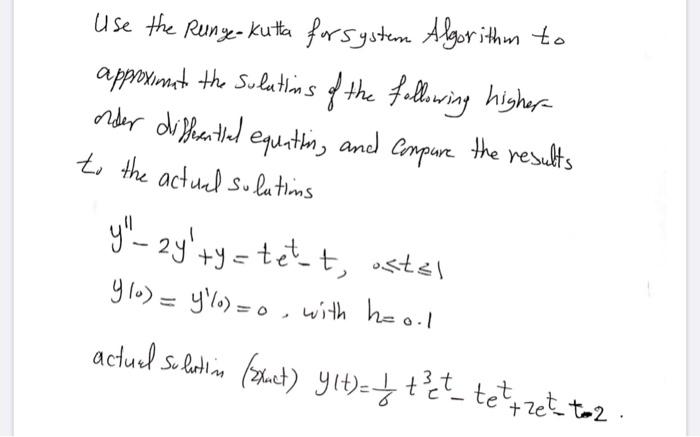 Use the Runge-Kutta for system Algorithm to
approximat the solutions of the following higher-
order differential equation, and Compare the results
to the actual solutions
y'' - 2y' + y = te^t - t, 0≤t≤1
y(0) = y'(0) = 0, with h=0.1
actual solution (Exact) y(t) = 1/6 t^3e^t - te^t + 2e^t - t - 2.